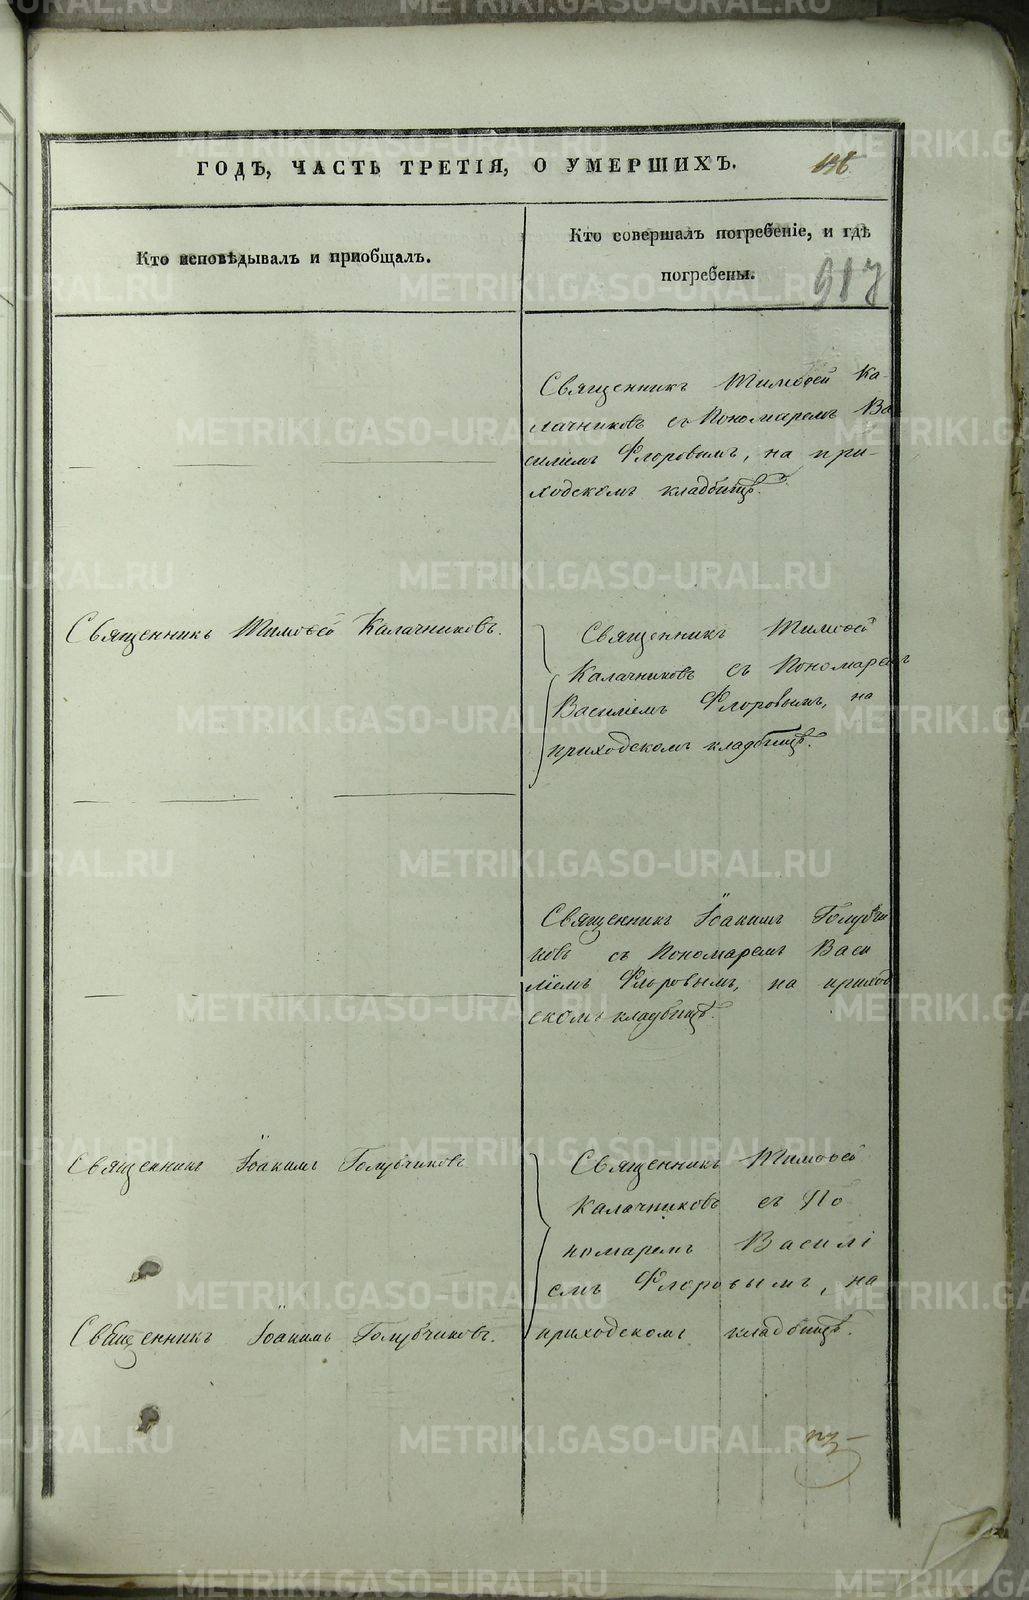 ГОДѢ, ЧАСТЬ ТРЕТІЯ, О УМЕРШИХЪ.
Кто исповѣдывалъ и пріобщалъ.
Кто совершалъ погребеніе, и гдѣ
погребены.
917
Священникъ Тимоѳей Ка-
лачниковъ съ Пономаремъ Ва
силіемъ Флоровымъ, на при-
ходскомъ кладбищѣ.
Священникъ Тимоѳей Калачниковъ.
Священникъ Тимоѳей
Калачниковъ съ Пономаремъ
Василіемъ Флоровымъ, на
приходскомъ кладбищѣ.
Священникъ Іоакимъ Голубчи
ковъ съ Пономаремъ Васи
ліемъ Флоровымъ, на приход
скомъ кладбищѣ.
Священникъ Іоакимъ Голубчиковъ
Священникъ Тимоѳей
Калачниковъ съ По
номаремъ Василі
емъ Флоровымъ, на
приходскомъ кладбищѣ.
Священникъ Іоакимъ Голубчиковъ.
METRIKI.GASO-URAL.RU